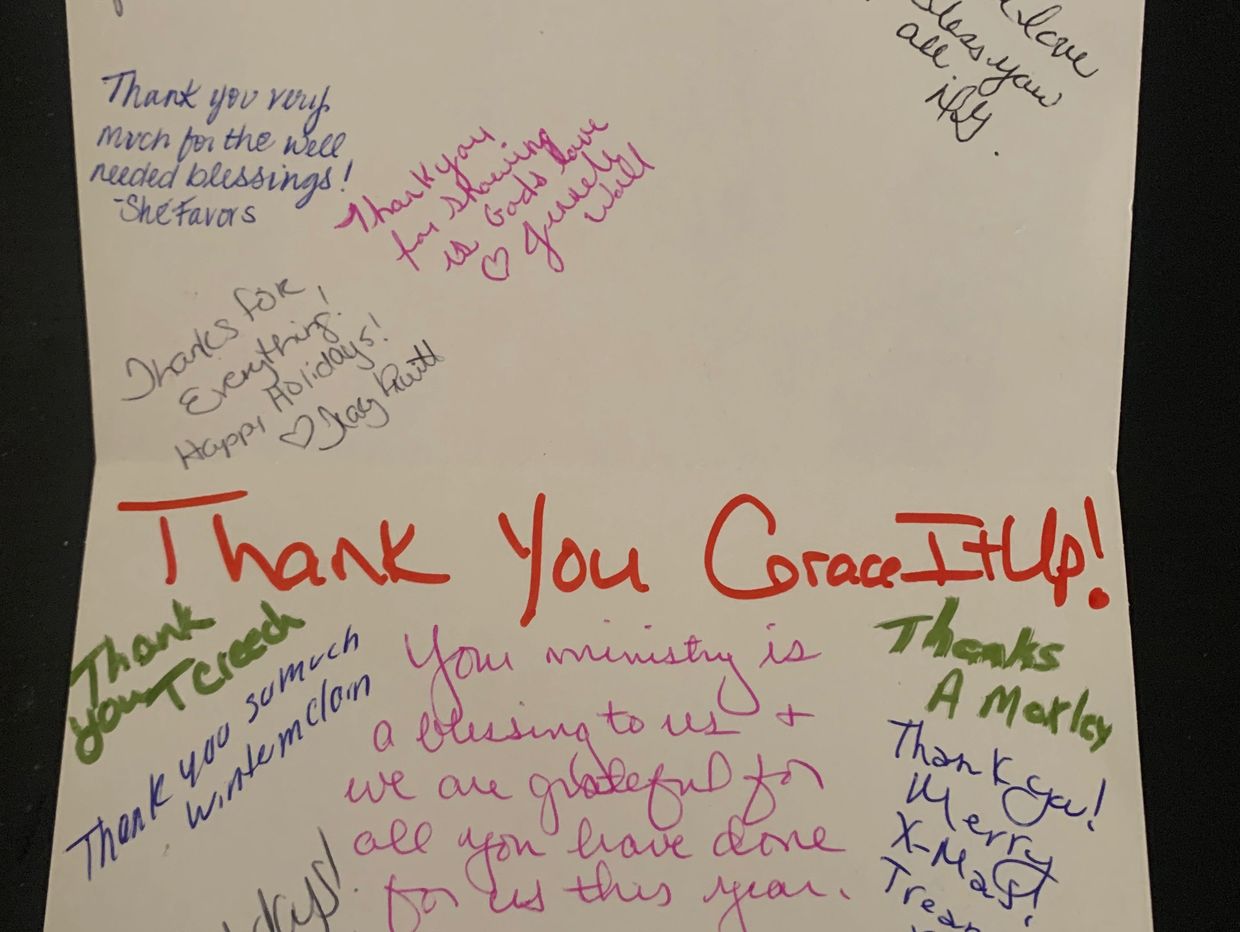 love
bless you
all.
Thank you very
much for the well
needed blessings!
-She'Favors
Thank you
for showing
is Gods love
♡
Wall
Thanks for
Everything!
Happy Holidays!
♡ Kay
Thank You Grace It Up!
Thank
you T Creech
Thank you so much
Your ministry is
a blessing to us +
we are grateful for
all you have done
for us this year.
Thanks
A Moxley
Thank you!
Merry
X-Mas!